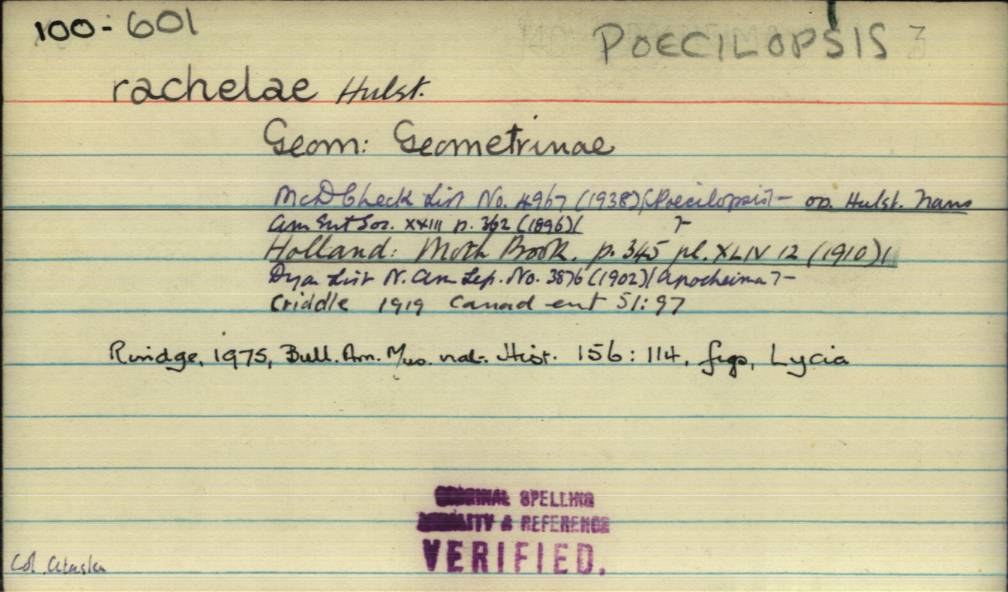 100-601
POECILOPSIS 3
rachelae Hulst.
Geom: Geometrinae
McD Check List No. 4967 (1938) (Poecilopsis) - op. Hulst. Trans
Am Ent Soc. XXIII p. 362 (1896)
Holland: Moth Book. p. 345 pl. XLIV 12 (1910)
Dyar List N. Am Lep. No. 3876 (1902) (Apocheima) -
Criddle 1919 Canad ent 51: 97
Rindge, 1975, Bull. Am. Mus. nat. Hist. 156: 114. figs, Lycia
ORIGINAL SPELLING
& REFERENCE
VERIFIED.
Col.